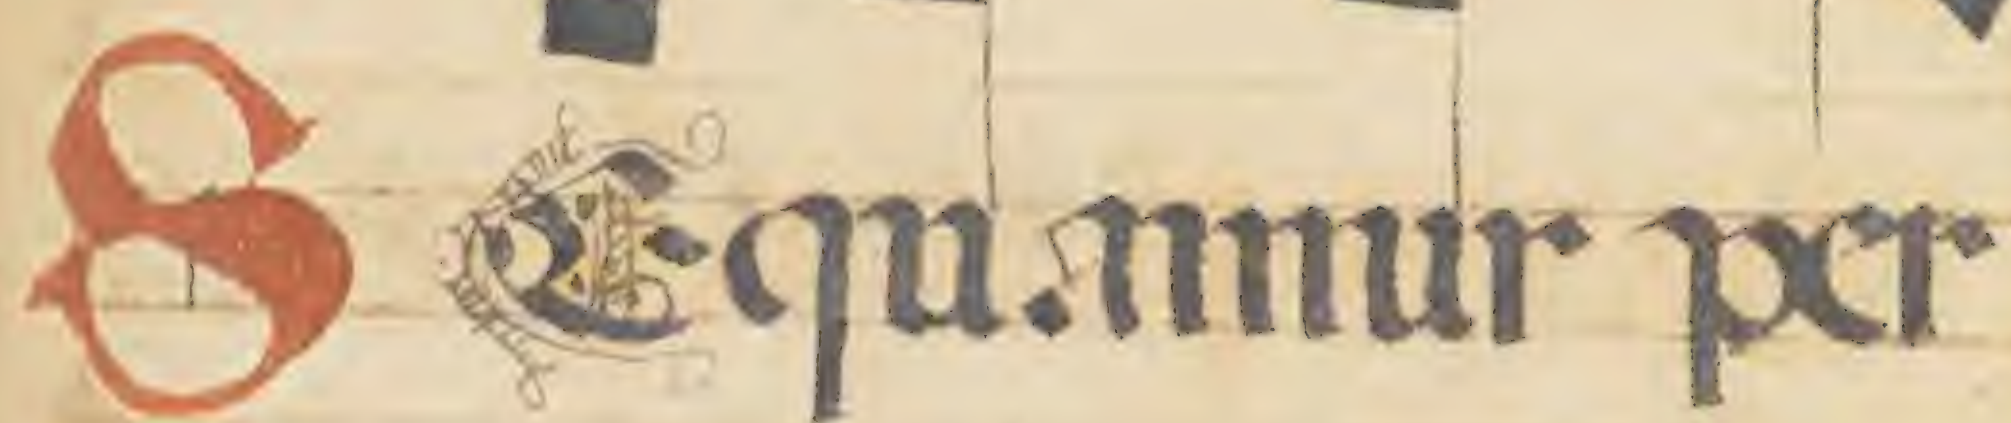 SEquamur per